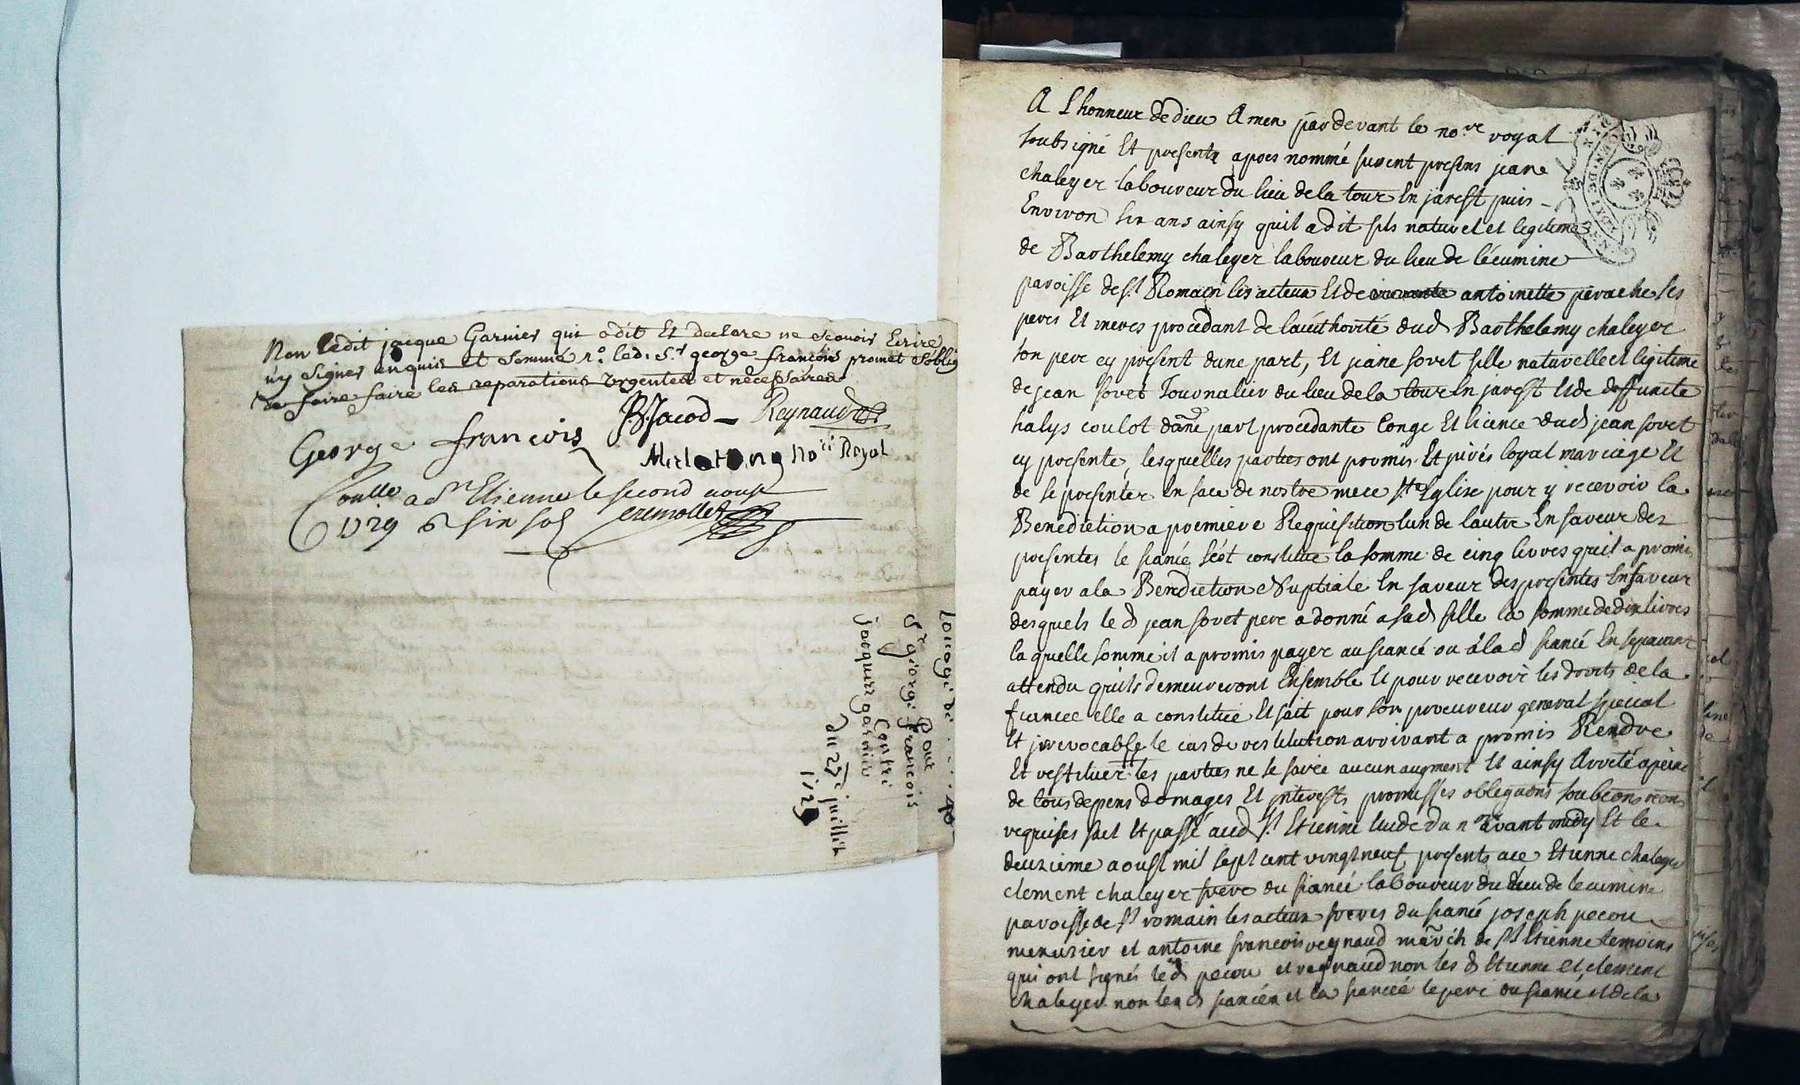 Non ledit jacque Garnier qui a dit Et declare ne scavoir Ecrire
n'y signer enquis et sommé r.° led. s.r george francois promet s'oblig
de faire faire les reparations urgentes et necessaires
B. Jacod Reynaud
George francois
No.re Royal
Conlle a S.n Etienne le second aoust
1729 R sin sol
Louage de
Pour
S.r george francois
Contre
jacques garnier
du 27e juillet
1729
A L honneur de dieu Amen pardevant le no.re royal
soubsigné Et presents apres nommé furent presens jean
chaleyer laboureur du lieu de la tour En jarest puis
Environ six ans ainsy quil a dit fils naturel et legitime
de Barthelemy chaleyer laboureur du lieu de lécumine
paroisse de s.t Romain les atteux Et de antoinette perache ses
peres Et meres procedant de lauthorité dud Barthelemy chaleyer
son pere cy present dune part, Et jeane fovet fille naturelle et legitime
de jean fovet Journalier du lieu de la tour En jarest Et de deffuncte
halys coulot dautre part procedante Conge Et licence dud jean fovet
cy presente, lesquelles parties ont promis Et jurés loyal mariage Et
de se presenter En face de nostre mere s.te Eglise pour y recevoir la
Benediction a premiere Requisition lun de lautre En faveur des
presentes le fiancé sest constitué la somme de cinq livres quil a promis
payer a la Benediction Nuptiale En faveur des presentes En faveur
desquels le d jean fovet pere a donné a sad fille la somme de dix livres
laquelle somme il a promis payer au fiancé ou a la d fiancé En separant
attendu quils demeureront Ensemble Et pour recevoir les droits de la
fiancee elle a constitué Et fait pour son procureur general special
Et jrrevocable le cas de restitution arrivant a promis Rendre
Et restituer les parties ne se faire aucun augment Et ainsy Arreté a peine
de tous depens domages Et jnterests promesses obligaons soubmons renons
requises fait Et passé aud s.t Etienne Etude du n.re avant midy Et le
deuzieme aoust mil sept cent vingt neuf presents ace Etienne chaleyer
clement chaleyer frere du fiancé laboureur du lieu de lecumine
paroisse de s.t romain les atteux freres du fiancé joseph pecou
menusier et antoine francois reynaud march de s.t Etienne temoins
qui ont signés les d pecou et reynaud non les d Etienne et clement
chaleyer non les d fiancés et la fiancée le pere du fiancé et de la